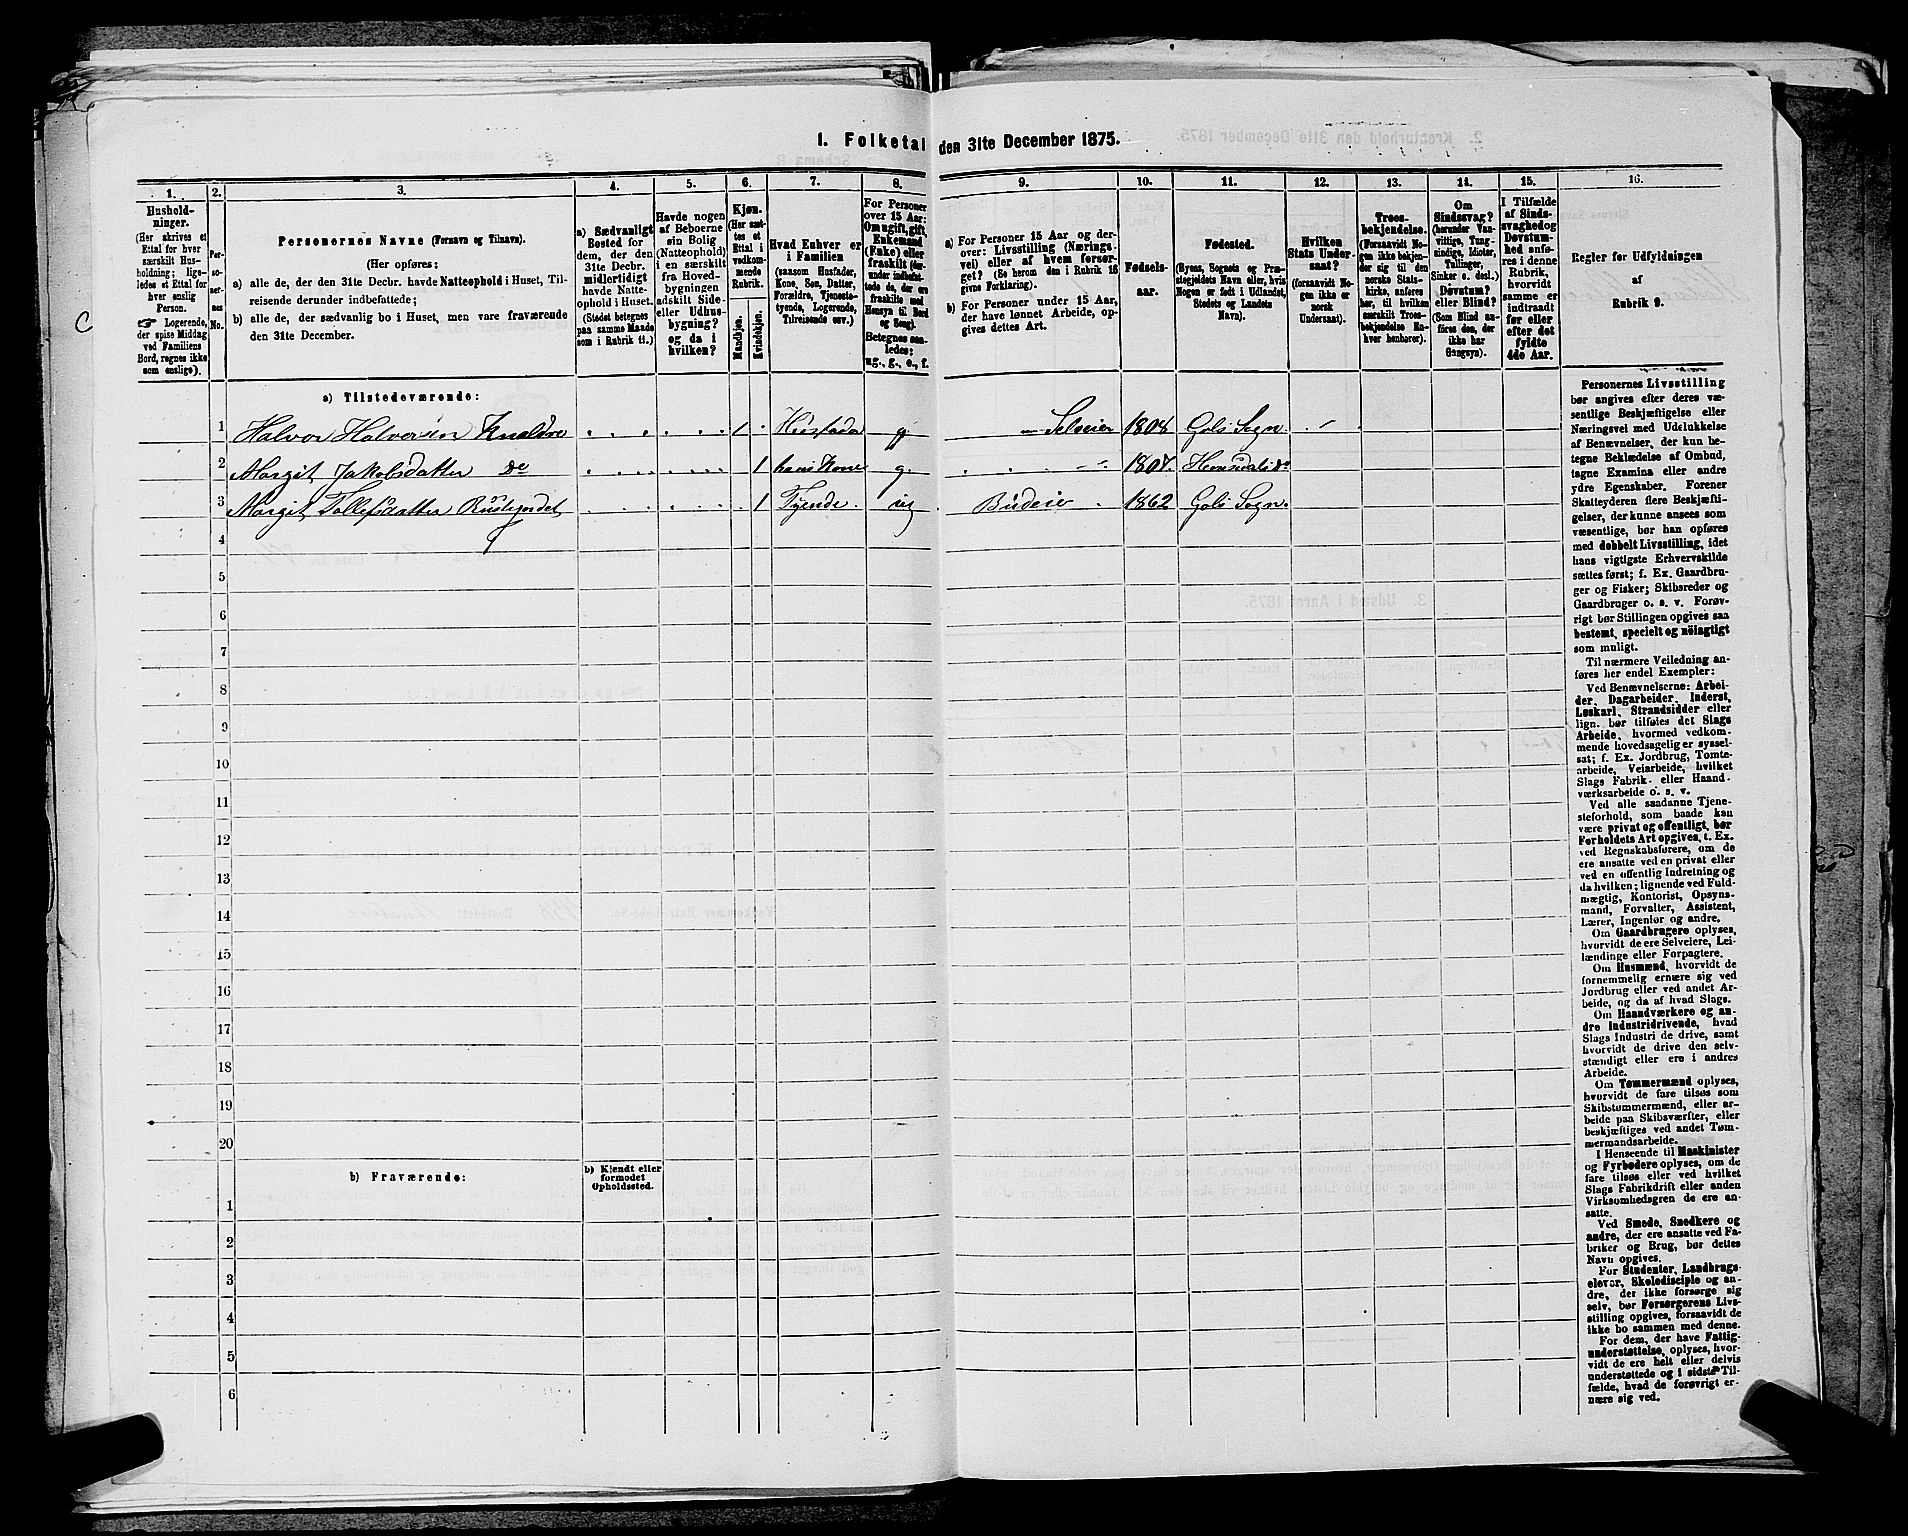 1. Folketal den 31te December 1875.
1. 2. 3. 4. 5. 6. 7. 8. 9. 10. 11. 12. 13. 14. 15. 16.
Hushold-
ninger.
(Her skrives et
Ettal for hver
særskilt Hus-
holdning; lige-
ledes et Ettal for
hver enslig
Person.
☞ Logerende,
der spise Middag
ved Familiens
Bord, regnes ikke
som enslige).
Per-
so-
ner-
nes
No.
Personernes Navne (Fornavn og Tilnavn).
(Her opføres:
a) alle de, der den 31te Decbr. havde Natteophold i Huset, Til-
reisende derunder indbefattede;
b) alle de, der sædvanlig bo i Huset, men vare fraværende
den 31te December.
a) Sædvanligt
Bosted for
dem, der den
31te Decbr.
midlertidigt
havde Natte-
ophold i Huset.
(Stedet betegnes
paa samme Maade
som i Rubrik 11.)
Havde nogen
af Beboerne
sin Bolig
(Natteophold)
i en særskilt
fra Hoved-
bygningen
adskilt Side-
eller Udhus-
bygning?
og da i
hvilken?
Kjøn.
(Her sæt-
tes et
Ettal i
vedkom-
mende
Rubrik.
Mandkjøn.
Kvindekjøn.
Hvad Enhver er
i Familien
(saasom Husfader,
Kone, Søn, Datter,
Forældre, Tjeneste-
tyende, Logerende,
Tilreisende osv.)
For Personer
over 15 Aar:
Om ugift, gift,
Enkemand
(Enke) eller
fraskilt (der-
under indbefat-
tede de, der ere
fraskilte med
Hensyn til Bord
og Seng).
Betegnes saa-
ledes:
ug., g., e., f.
a) For Personer 15 Aar og der-
over: Livsstilling (Nærings-
vei) eller af hvem forsør-
get? (Se herom den i Rubrik 16
givne Forklaring).
b) For Personer under 15 Aar,
der have lønnet Arbeide, op-
gives dettes Art.
Fødsels-
aar.
Fødested.
(Byens, Sognets og Præ-
stegjeldets Navn eller, hvis
Nogen er født i Udlandet,
Stedets og Landets
Navn).
Hvilken
Stats Under-
saat?
(forsaavidt No-
gen ikke er
norsk
Undersaat).
Troes-
bekjendelse.
(Forsaavidt No-
gen ikke bekjen-
der sig til den
norske Stats-
kirke, anføres
her, til hvilken
særskilt Troes-
bekjendelse En-
hver henhører).
Om
Sindssvag?
(herunder Van-
vittige, Tung-
sindige, Idioter,
Tullinger,
Sinker o. desl.)
Døvstum?
eller Blind?
(Som Blind an-
føres den, der
ikke har
Gangsyn).
I Tilfælde
af Sinds-
svaghed og
Døvstum-
hed anfø-
res i denne
Rubrik,
hvorvidt
samme er
indtraadt
før eller
efter det
fyldte
4de Aar.
Regler for Udfyldningen
af
Rubrik 9.
a) Tilstedeværende:
1 Halvor Halvorsen Knaldre 1 Husfader g Selveier 1808 Gols Sogn
2 Margit Jakobsdatter do 1 hans Kone g. 1807. Hemsedals do
3 Margit Tollefsdatter Rustefordet 1 Tyende ug Budeie 1862 Gols Sogn.
4
5
6
7
8
9
10
11
12
13
14
15
16
17
18
19
20
b) Fraværende:
b) Kjendt eller
formodet
Opholdssted.
1
2
3
4
5
6
Personernes Livsstilling
bør angives efter deres væ-
sentlige Beskjæftigelse eller
Næringsvei med Udelukkelse
af Benævnelser, der kun be-
tegne Beklædelse af Ombud,
tagne Examina eller andre
ydre Egenskaber. Forener
Skatteyderen flere Beskjæfti-
gelser, der kunne ansees som
væsentlige, bør han opføres
med dobbelt Livsstilling, idet
hans vigtigste Erhvervskilde
sættes først; f. Ex. Gaardbru-
ger og Fisker; Skibsreder og
Gaardbruger o. s. v. Forøv-
rigt bør Stillingen opgives saa
bestemt, specielt og nöiagtigt
som muligt.
Til nærmere Veiledning an-
føres her endel Exempler:
Ved Benævnelserne: Arbei-
der, Dagarbeider, Inderst,
Løskarl, Strandsidder eller
lign. bør tilføies det Slags
Arbeide, hvormed vedkom-
mende hovedsagelig er syssel-
sat; f. Ex. Jordbrug, Tomte-
arbeide, Veiarbeide, hvilket
Slags Fabrik- eller Haand-
værksarbeide o. s. v.
Ved alle saadanne Tjene-
steforhold, som baade kan
være privat og offentligt, bør
Forholdets Art opgives, t. Ex.
ved Regnskabsførere, om de
ere ansatte ved en privat eller
ved en offentlig Indretning og
da hvilken; lignende ved Fuld-
mægtig, Kontorist, Opsyns-
mand, Forvalter, Assistent,
Lærer, Ingeniør og andre.
Om Gaardbrugere oplyses,
hvorvidt de ere Selveiere, Lei-
lændinge eller Forpagtere.
Om Husmænd, hvorvidt de
fornemmelig ernære sig ved
Jordbrug eller ved andet Ar-
beide, og da af hvad Slags.
Om Haandværkere og an-
dre Industridrivende, hvad
Slags Industri de drive, samt
hvorvidt de drive den selv-
stændigt eller ere i andres
Arbeide.
Om Tømmermænd oplyses,
hvorvidt de fare tilsøs som
Skibstømmermænd, eller ar-
beide paa Skibsværfter, eller
beskjæftiges ved andet Tøm-
mermandsarbeide.
I Henseende til Maskinister
og Fyrbødere oplyses, om de
fare tilsøs eller ved hvilket
Slags Fabrikdrift eller anden
Virksomhedsgren de ere an-
satte.
Ved Smede, Snedkere og
andre, der ere ansatte ved Fa-
briker og Brug, bør dettes
Navn opgives.
For Studenter, Landbrugs-
elever, Skoledisciple og an-
dre, der ikke forsørge sig
selv, bør Forsørgerens Livs-
stilling opgives, forsaavidt de
ikke bo sammen med denne.
For dem, der have Fattig-
understøttelse, oplyses, hvor-
vidt de ere helt eller delvis
understøttede og i sidste Til-
fælde, hvad de forøvrigt er-
nære sig ved.